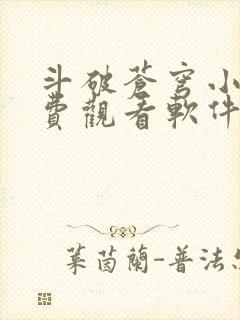 斗破蒼穹小
費觀看軟件
葉茵蘭-普法